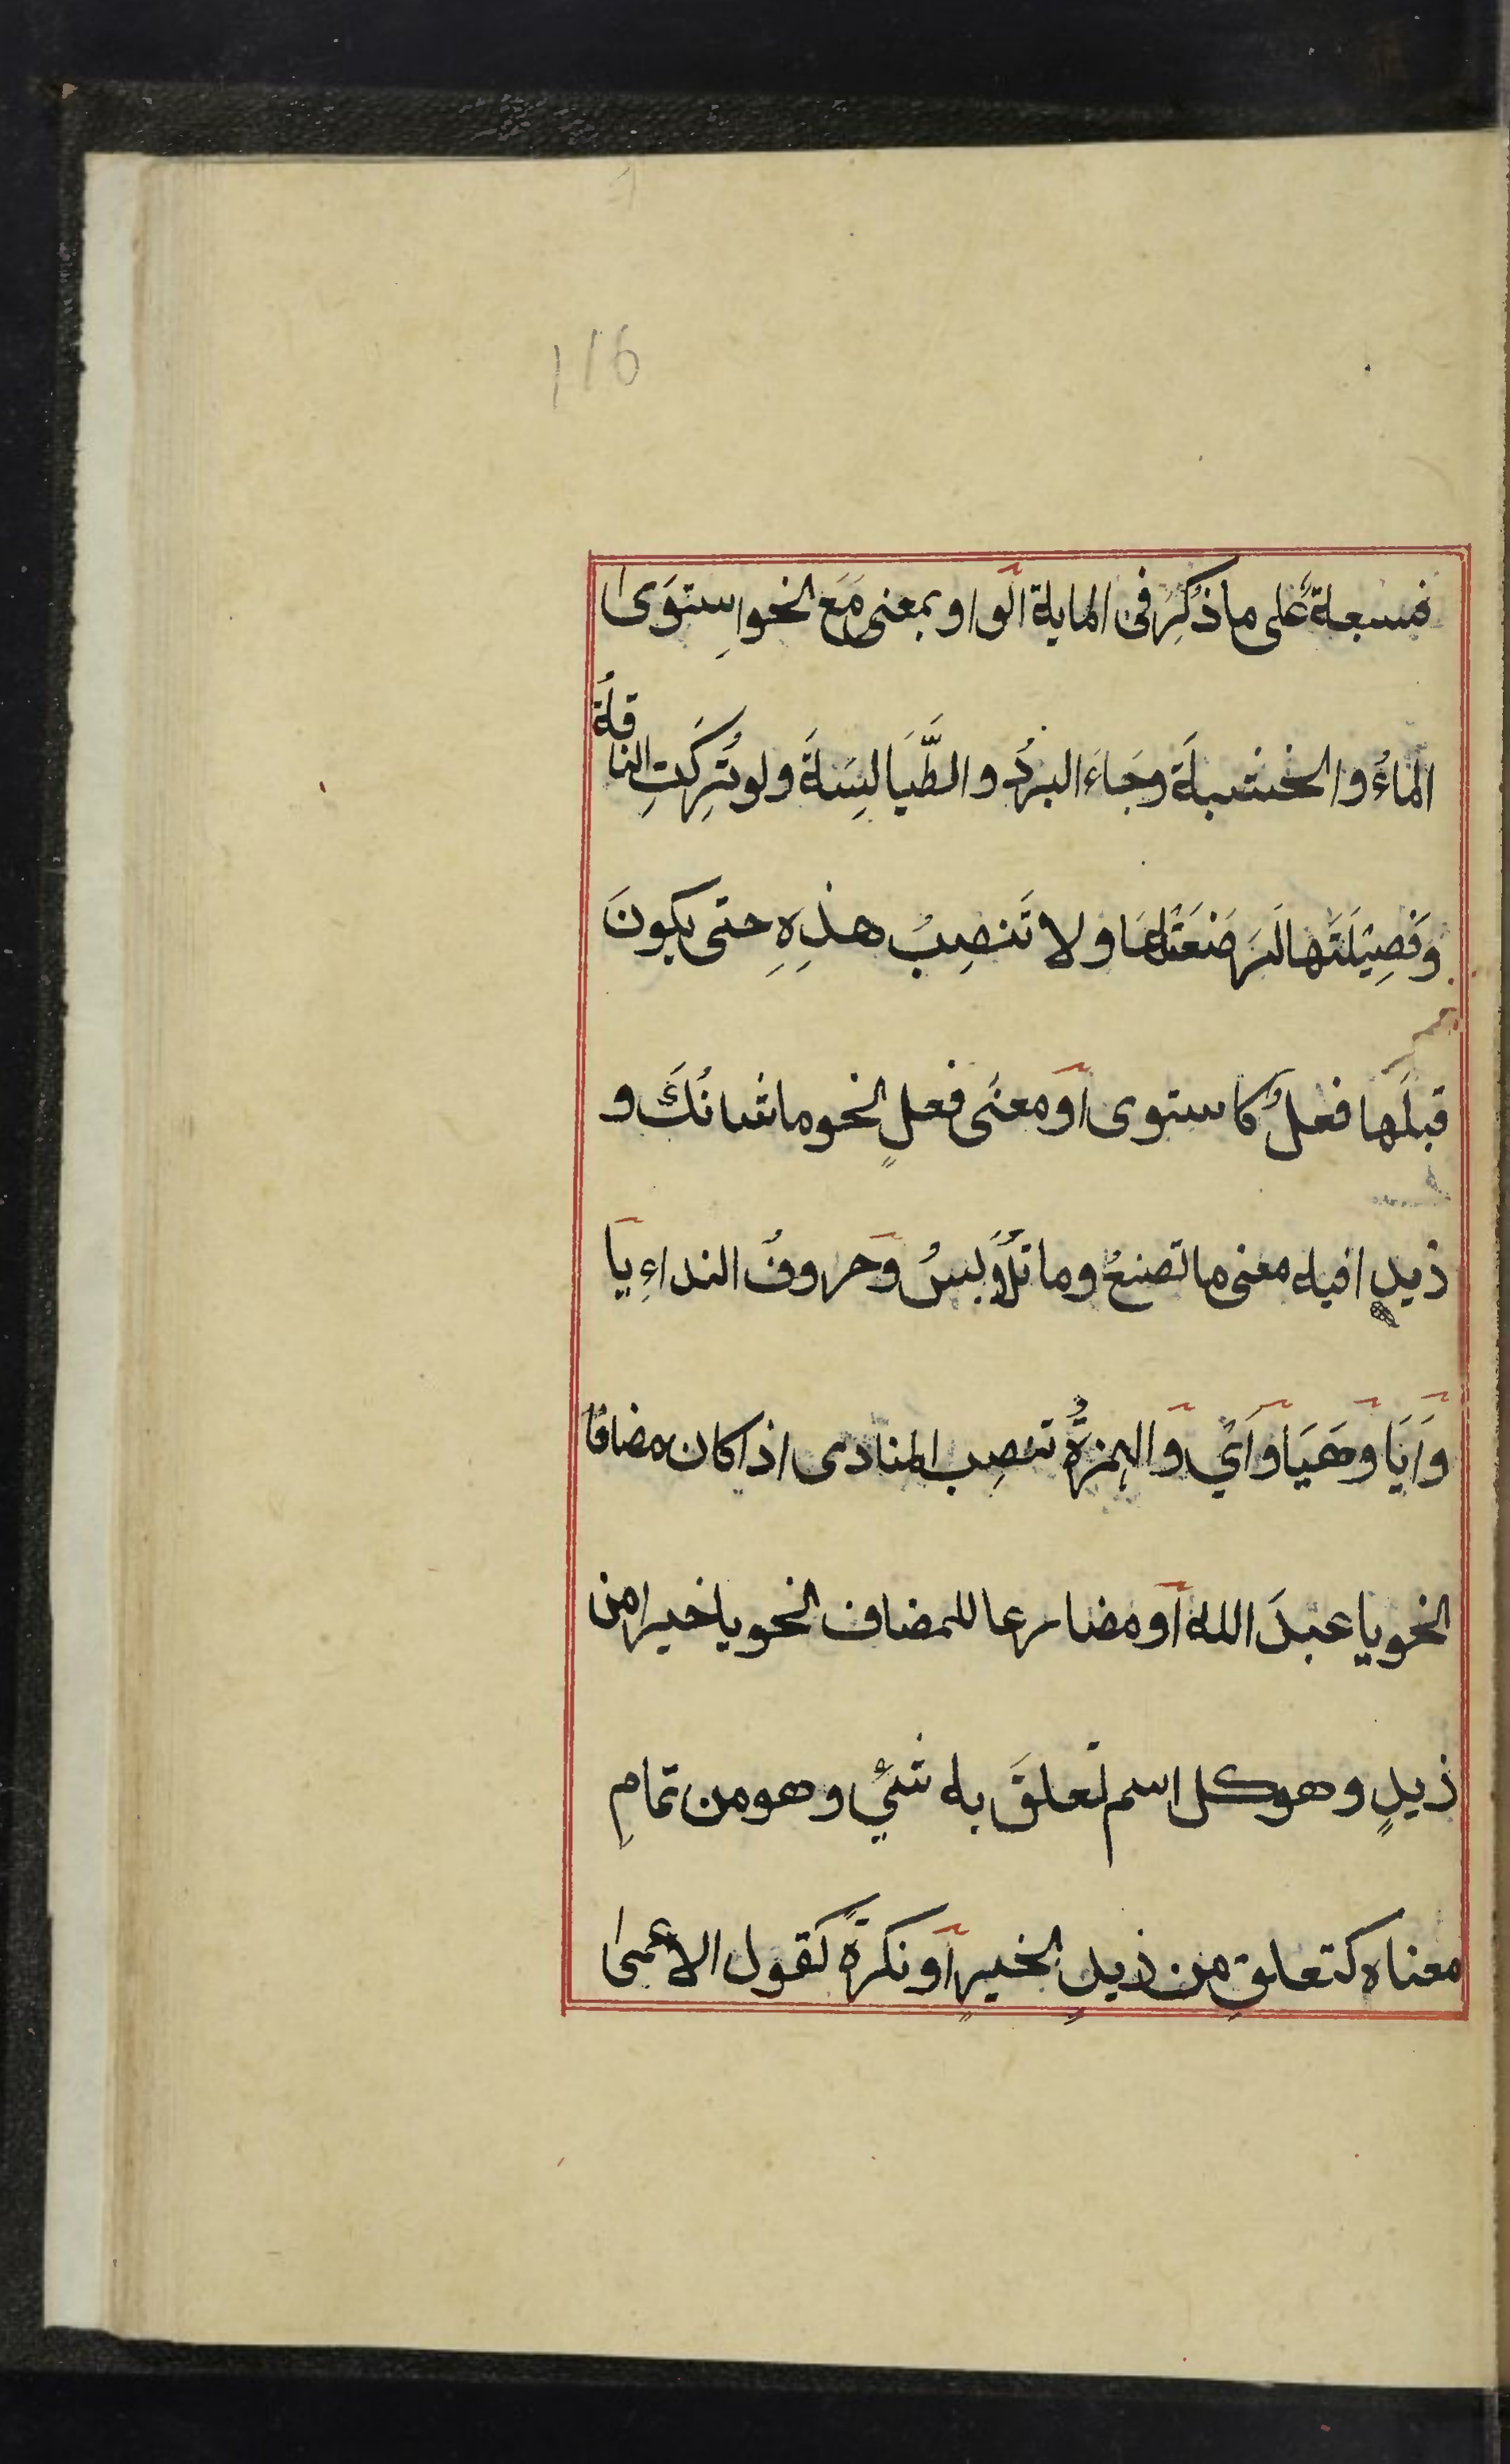 116
فسبعة على ما ذُكِرَ فى الماية الواو بمعنى مَعَ نحو اِستوَى
الماءُ والخشبةَ وجَاءَ البردُ والطَّيَالِسَةَ ولو تُرِكَتِ الناقةُ
وَفَصِيْلَتَهَا لَرَضَعَتْهَا ولا تَنصِبُ هذِهِ حتى يكونَ
قبلَها فعلٌ كاستوى او معنَى فعلٍ نحو ما شانُكَ و
ذيدٍ افيه معنى ما تصنعُ وما تُلَاوبسُ وحروفُ النداءِ يا
وَاَيَا وهَيَا واَىْ والهمزةُ تنصِب المنادى اذا كان مضافًا
نحو يا عبدَ الله او مضارعا للمضاف نحو يا خيرا من
ذيدٍ وهو كل اسم تعلقَ به شئٌ وهو من تمامِ
معناه كتعلقِ من ذيدٍ بخيرٍ او نكرةً كقول الاعمى